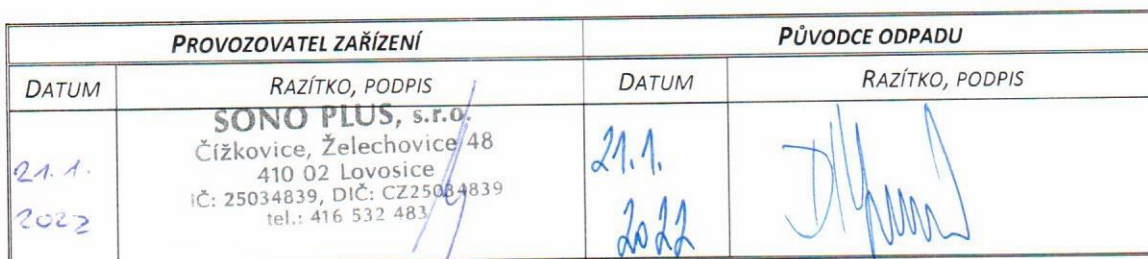 PROVOZOVATEL ZAŘÍZENÍ PŮVODCE ODPADU
DATUM RAZÍTKO, PODPIS DATUM RAZÍTKO, PODPIS
SONO PLUS, s.r.o.
Čížkovice, Želechovice 48
410 02 Lovosice
IČ: 25034839, DIČ: CZ25034839
tel.: 416 532 483
21.1.
2022
21.1.
2022